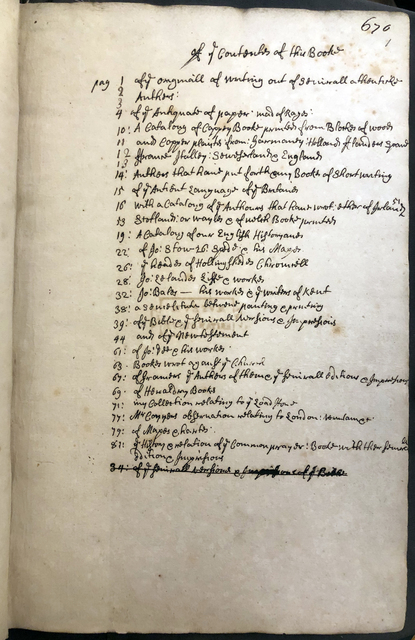 670
1
Of yᵉ Contentes of this Booke
pag 1 of yᵉ oringinall of writing out of seuirall athenticke
2 Authers:
3
4 of yᵉ Antiquate of paper: mad of Rages:
10: A Catalog of Coppey Booke printed from Blockes of wood
11 and Copper plaites from: Germaney: Holland flanders Spaine
12 ffrance Italley: Sweserland & England
13
14: Authers that haue put forth any Booke of Short writing
15 of yᵉ Antient Language of yᵉ Britanes
16 with a Catalog of yᵉ Authours that haue wrot: ether of Irland
Scotland: or wayles & of welch Booke printed
19: A Catalog of our English Historyanes
22: of Jo: Stow 26: Speed & his Mapes
26: yᵉ Heades of Hollingshedes Chronicell
28: Jo: Lelandes Liffe & workes
32: Jo: Bales — his workes & yᵉ writers of Kent
38: a demelitute betwene painting & printing
39: of yᵉ Bible & yᵉ seuirall Versions & Impresiois
44 and of yᵉ Newtestement
61: of Jo: dee & his workes:
63: Bookes wrot against yᵉ Church
67: of Gramers yᵉ Authers of them & yᵉ seuirall Editions & Impresions
69: of Heraldry Bookes
71: my Collection relating to yᵉ London
77: Mʳ Conyers obseruation relating to London:
79: of Mapes & hartes:
81: yᵉ History & relation of yᵉ Common prayer: Booke with ther seuirall
Editions Impresions
84: of yᵉ seuirall versions & Impresions of yᵉ Booke